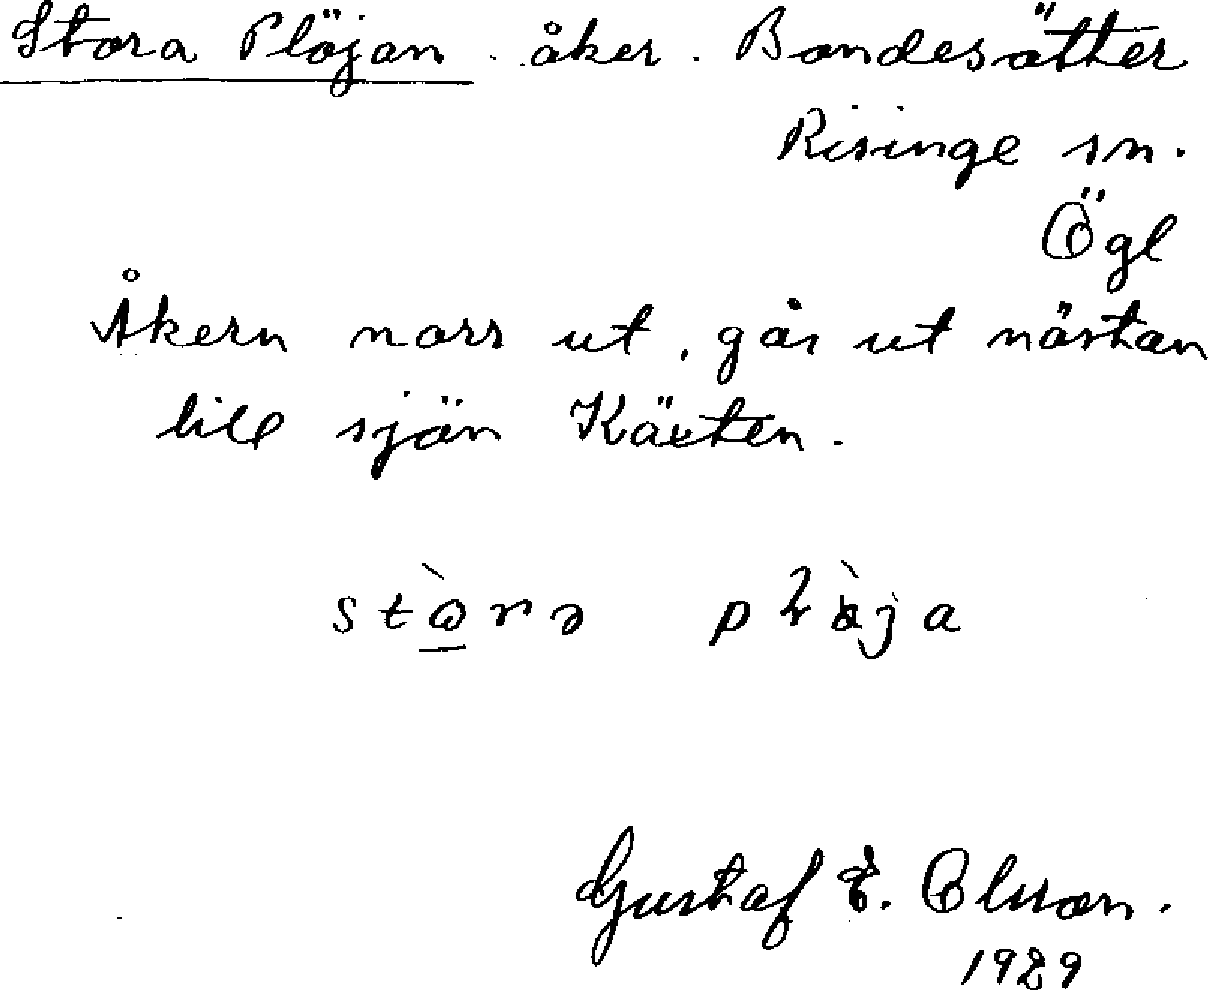 Stora Plöjan . åker . Bondesätter
Risinge sn.
Ögl
Åkern norr ut, går ut nästan
till sjön Käxten.
Gustaf E. Olsson.
1929